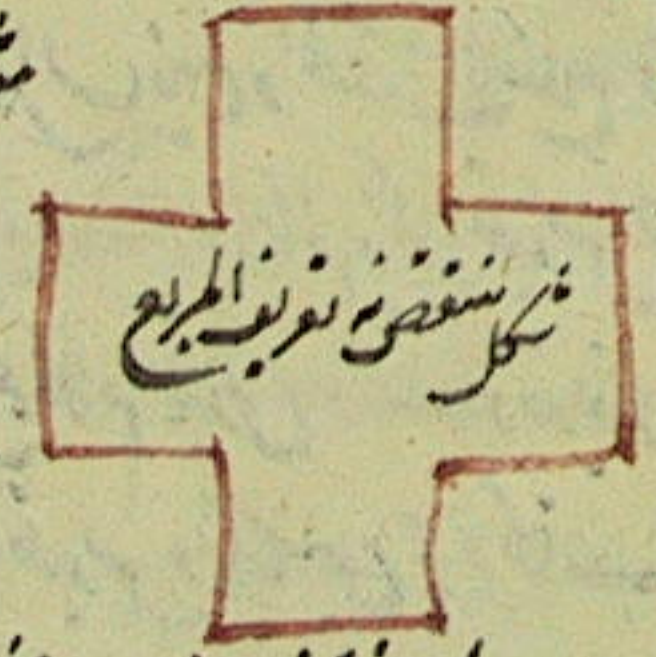 شكل ينتقض به تعريف المربع